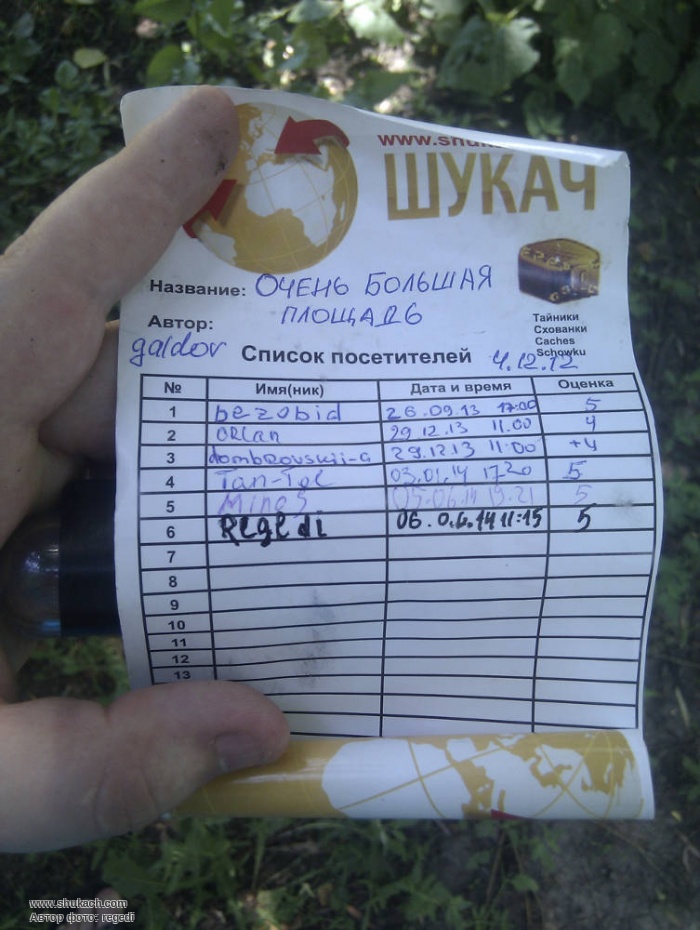 www.shuk
ШУКАЧ
Название: ОЧЕНЬ БОЛЬШАЯ
ПЛОЩАДЬ
Автор:
galdor
Тайники
Схованки
Caches
Schowku
Список посетителей 4.12.12
№ Имя(ник) Дата и время Оценка
1 bezobid 26.09.13 17:00 5
2 ORLan 29.12.13 11.00 4
3 dombrovskii-a 29.12.13 11:00 +4
4 Tan-Tol 03.01.14 1720 5
5 Mino3 05.06.14 19.21 5
6 Regedi 06.0.6.14 11:15 5
7
8
9
10
11
12
13
www.shukach.com
Автор фото: regedi